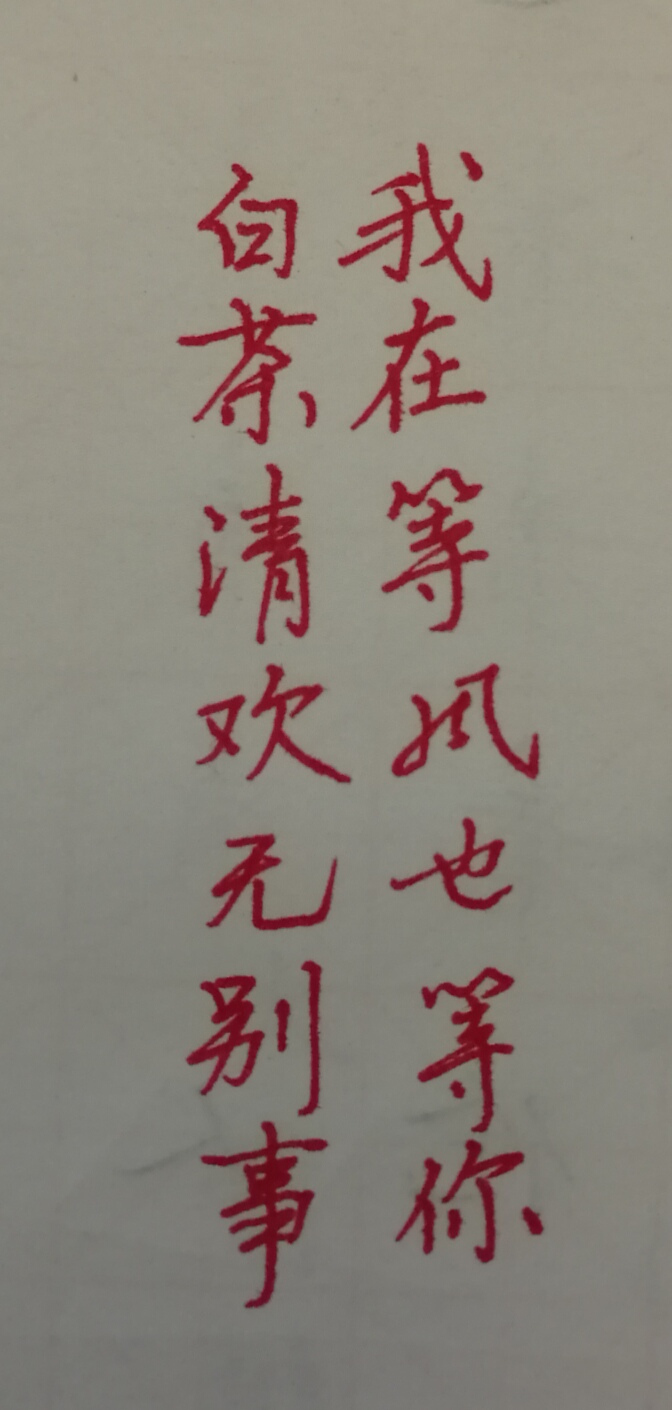 我在等风也等你
白茶清欢无别事